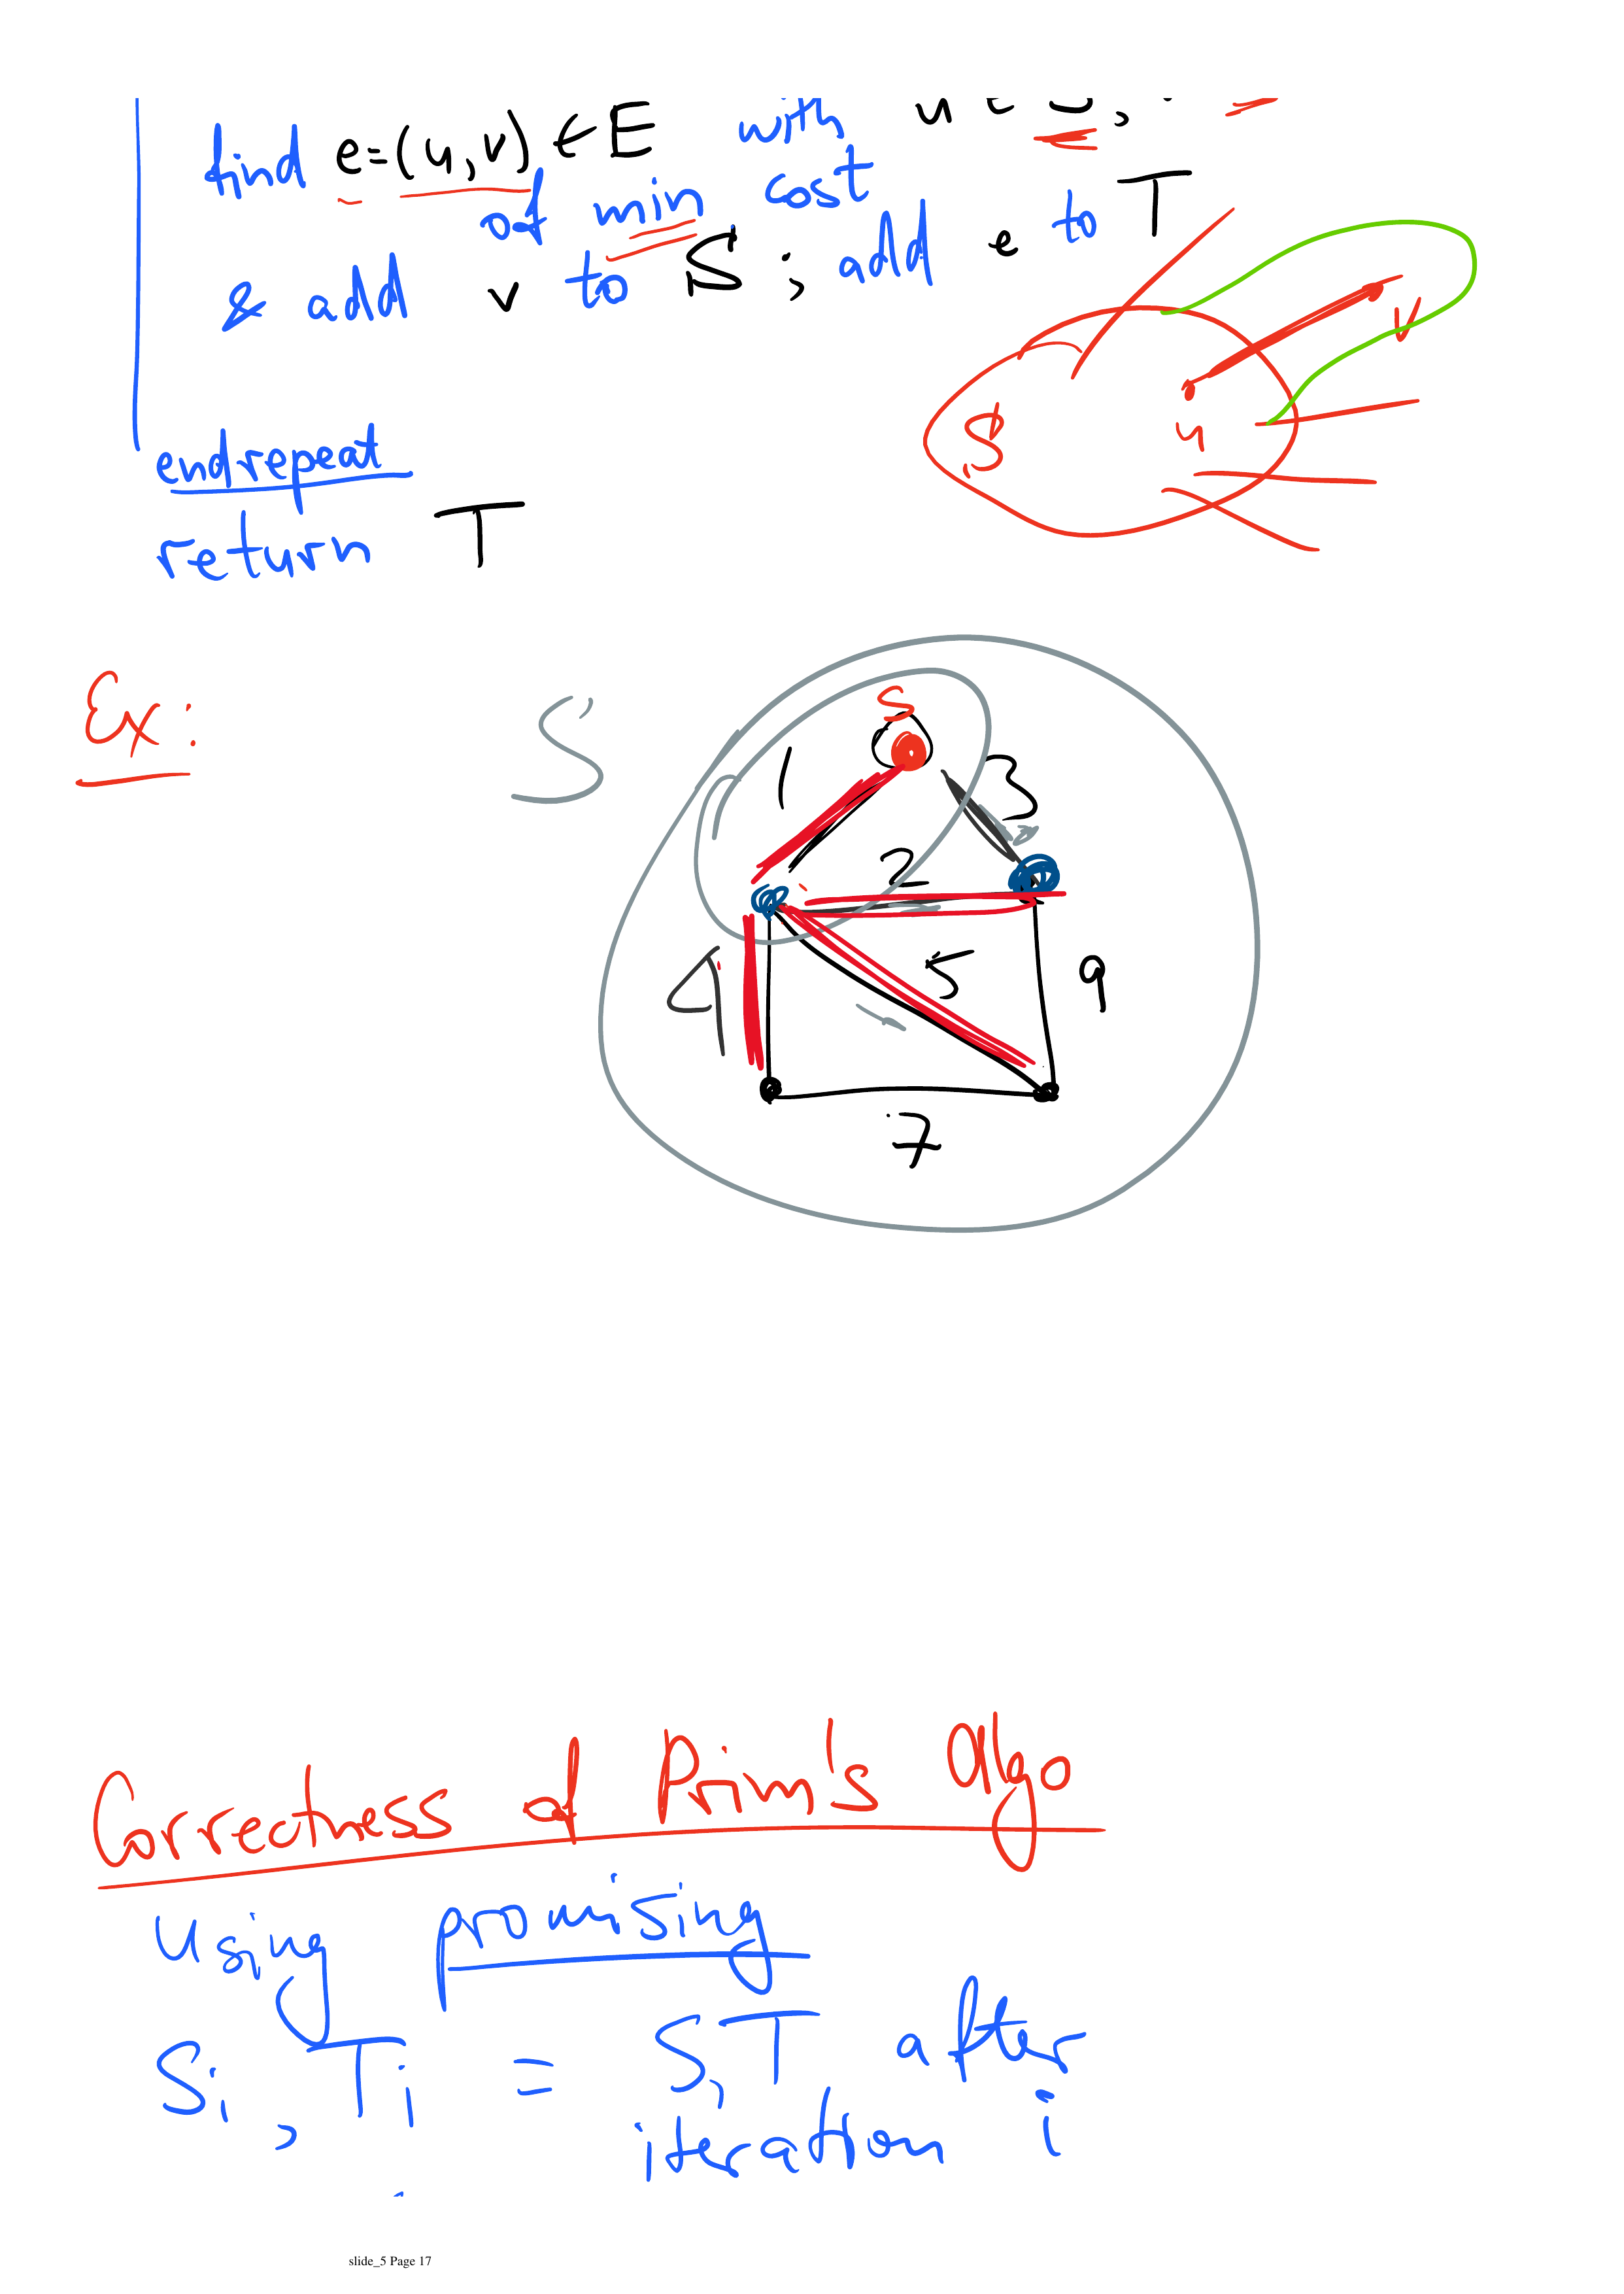 find e=(u,v) ∈ E with u ∈ S,
of min cost
& add v to S ; add e to T
v
S
u
endrepeat
return T
Ex:
S
s
1
3
2
4
5
9
7
Correctness of Prim's algo
Using promising
Si , Ti = S,T after
iteration i
slide_5 Page 17